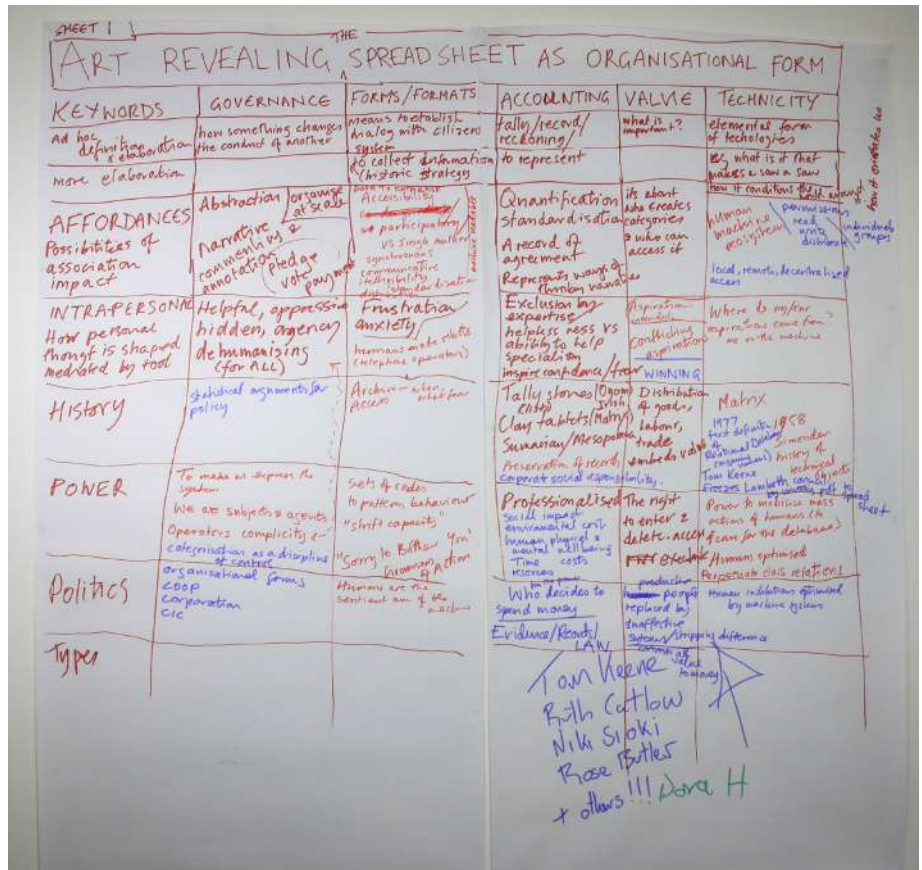 SHEET 1
THE
ART REVEALING SPREADSHEET AS ORGANISATIONAL FORM
KEYWORDS
GOVERNANCE
FORMS/FORMATS
ACCOUNTING
VALUE
TECHNICITY
Ad hoc
definition
& elaboration
how something changes
the conduct of another
means to establish
dialog with citizens
system
tally/record/
reckoning/
what is
important?
elemental form
of techologies
more elaboration
to collect information
(historic strategy
to represent
what is it that
makes a saw a saw
how it conditions the
AFFORDANCES
Possibilities of
association
impact
Abstraction
organise
at scale
narrative
commenting &
annotation
pledge
vote
payment
Accessibility
participatory
vs single author
synchronous
communicative
Quantification
standardisation
A record of
agreement
Represents ways of
its about
who creates
categories
& who can
access it
human
machine
ecosystem
permissions
read
write
distribute
individuals
groups
local, remote, decentralised
access
INTRA-PERSONAL
How personal
thougt is shaped
mediated by tool
Helpful, oppressing
hidden, agency
dehumanising
(for ALL)
Frustration
anxiety
humans made
(telephone operators)
Exclusion by
expertise
helpless ness vs
ability to help
specialism
inspire confidence/fear
Aspiration
Conflicting
aspiration
WINNING
Where do my/our
aspirations come from?
me or the machine
History
statistical arguments for
policy
Archive - when,
Access
Tally stones/Ogom
Irish
Clay tablets/Matrix
Sumarian/Mesopota
Preservation of records
corporate social responsibility.
Distribution
of goods,
labour,
trade
embeds value
Matrix
1977
first definition
of
Relational Database
Tom Keene
1958
Simondon
history of
technical
objects
POWER
To make us
system
We are subjects & agents
Operators complicity
categorisation as a discipline
of control
Sets of codes
to pattern behaviour
"shift capacity"
"Sorry to Bother You"
Grammars of Action
Professionalised
Social impact
enviromental cost
human physical &
mental well being
Time costs
resorces
The right
to enter &
delete. access
Power to mobilise mass
actions of humans (to
care for the database)
Humans optimised
Perpetuate class relations
Politics
organisational forms
COOP
Corporation
CIC
Humans are the
sentient arm of the
machine
Who decides to
spend money
Evidence/Records/
LAW
people
replaced by
inaffective
systems/stripping difference
value
to money
Human institutions optimised
by machine systems
Types
Tom Keene
Ruth Catlow
Niki Sioki
Rose Butler
+ others!!! Dora H